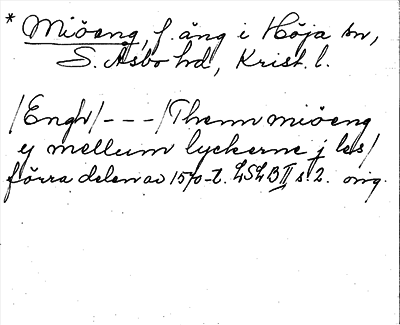 * Miöeng, f. äng i Höja sn,
S. Åsbo hd, Krist. l.
/Engh/ - - - /Thenn miöeng
ej mellum lyckerne j les/
förra delen av 1570-t. LSLB II s. 2. orig.